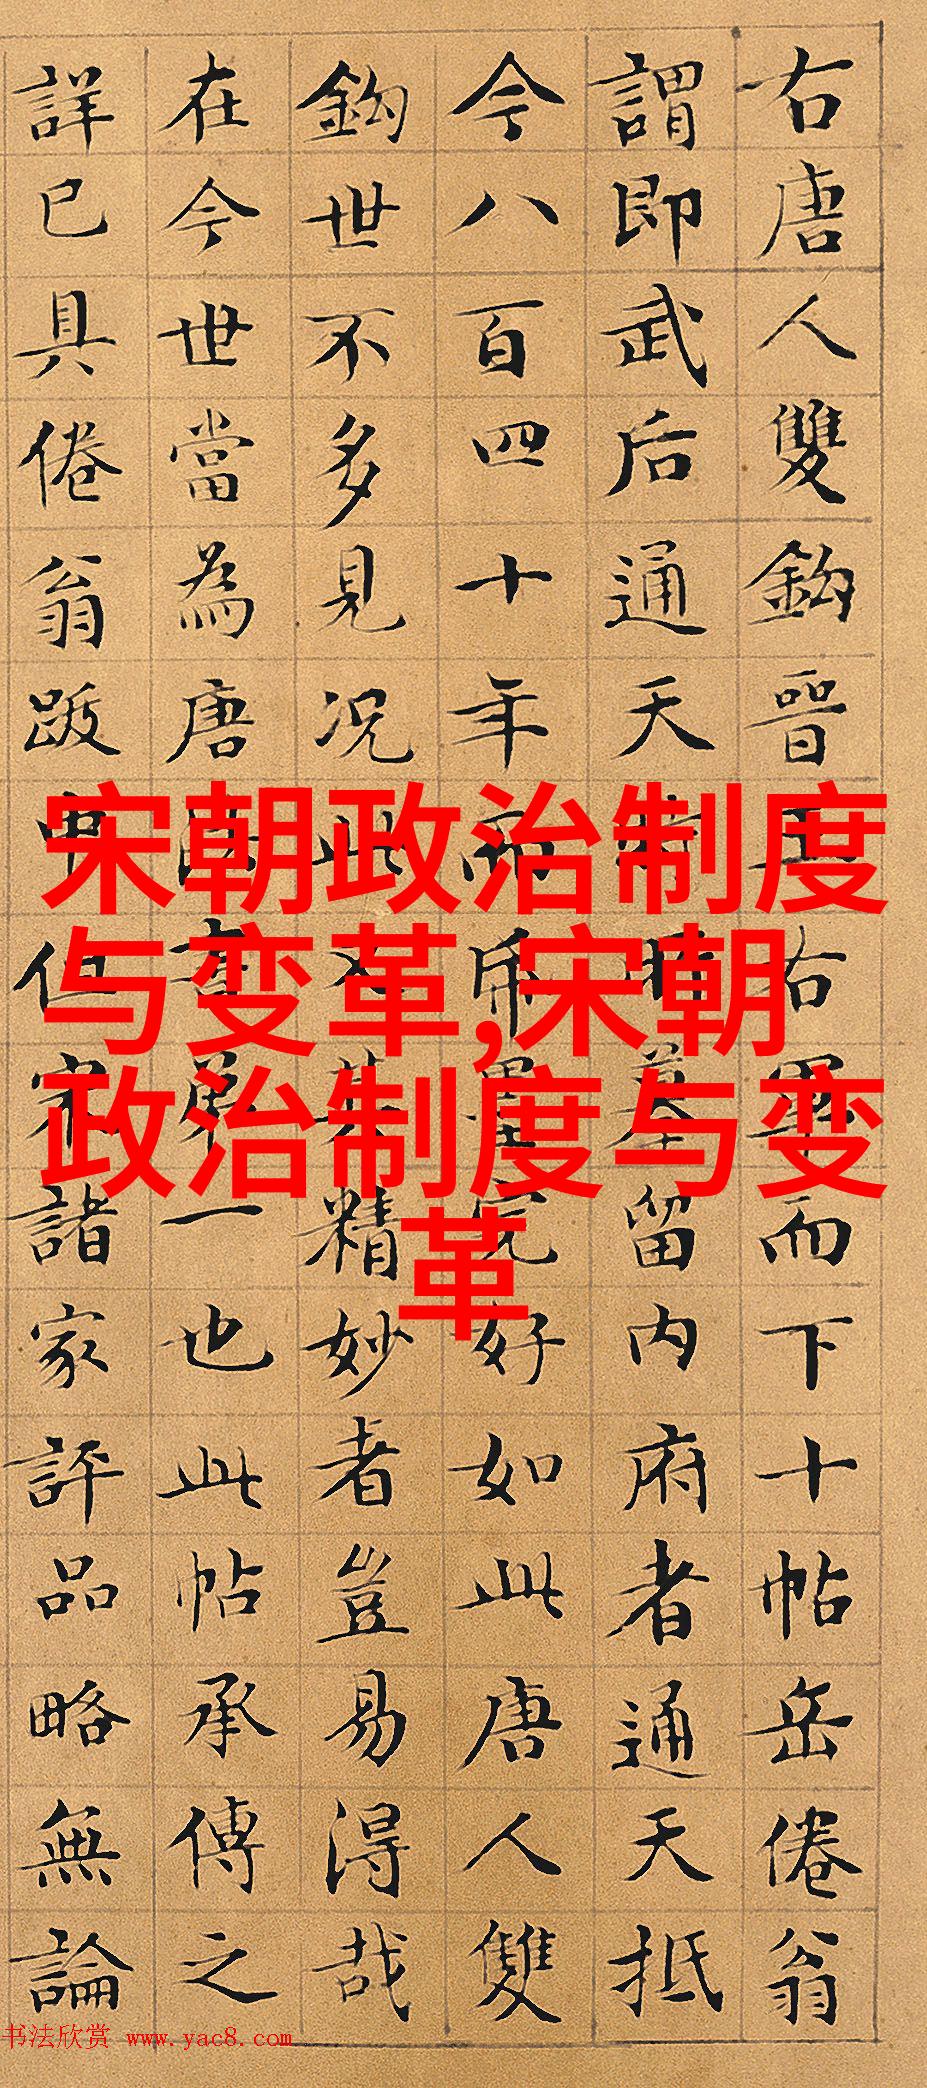 右唐人雙鉤晉王右軍而下十帖岳倦翁
謂即武后通天摹留內府者通天抵
今八百四十年墨完好如此唐人雙
鉤世不多見況此又其精妙者豈易得哉
在今世當為唐法書第一也此帖承傳之
詳已具倦翁跋中但宋諸家評品略無論
宋朝政治制度
与变革,宋朝
政治制度与变
革
书法欣赏 www.yac8.com